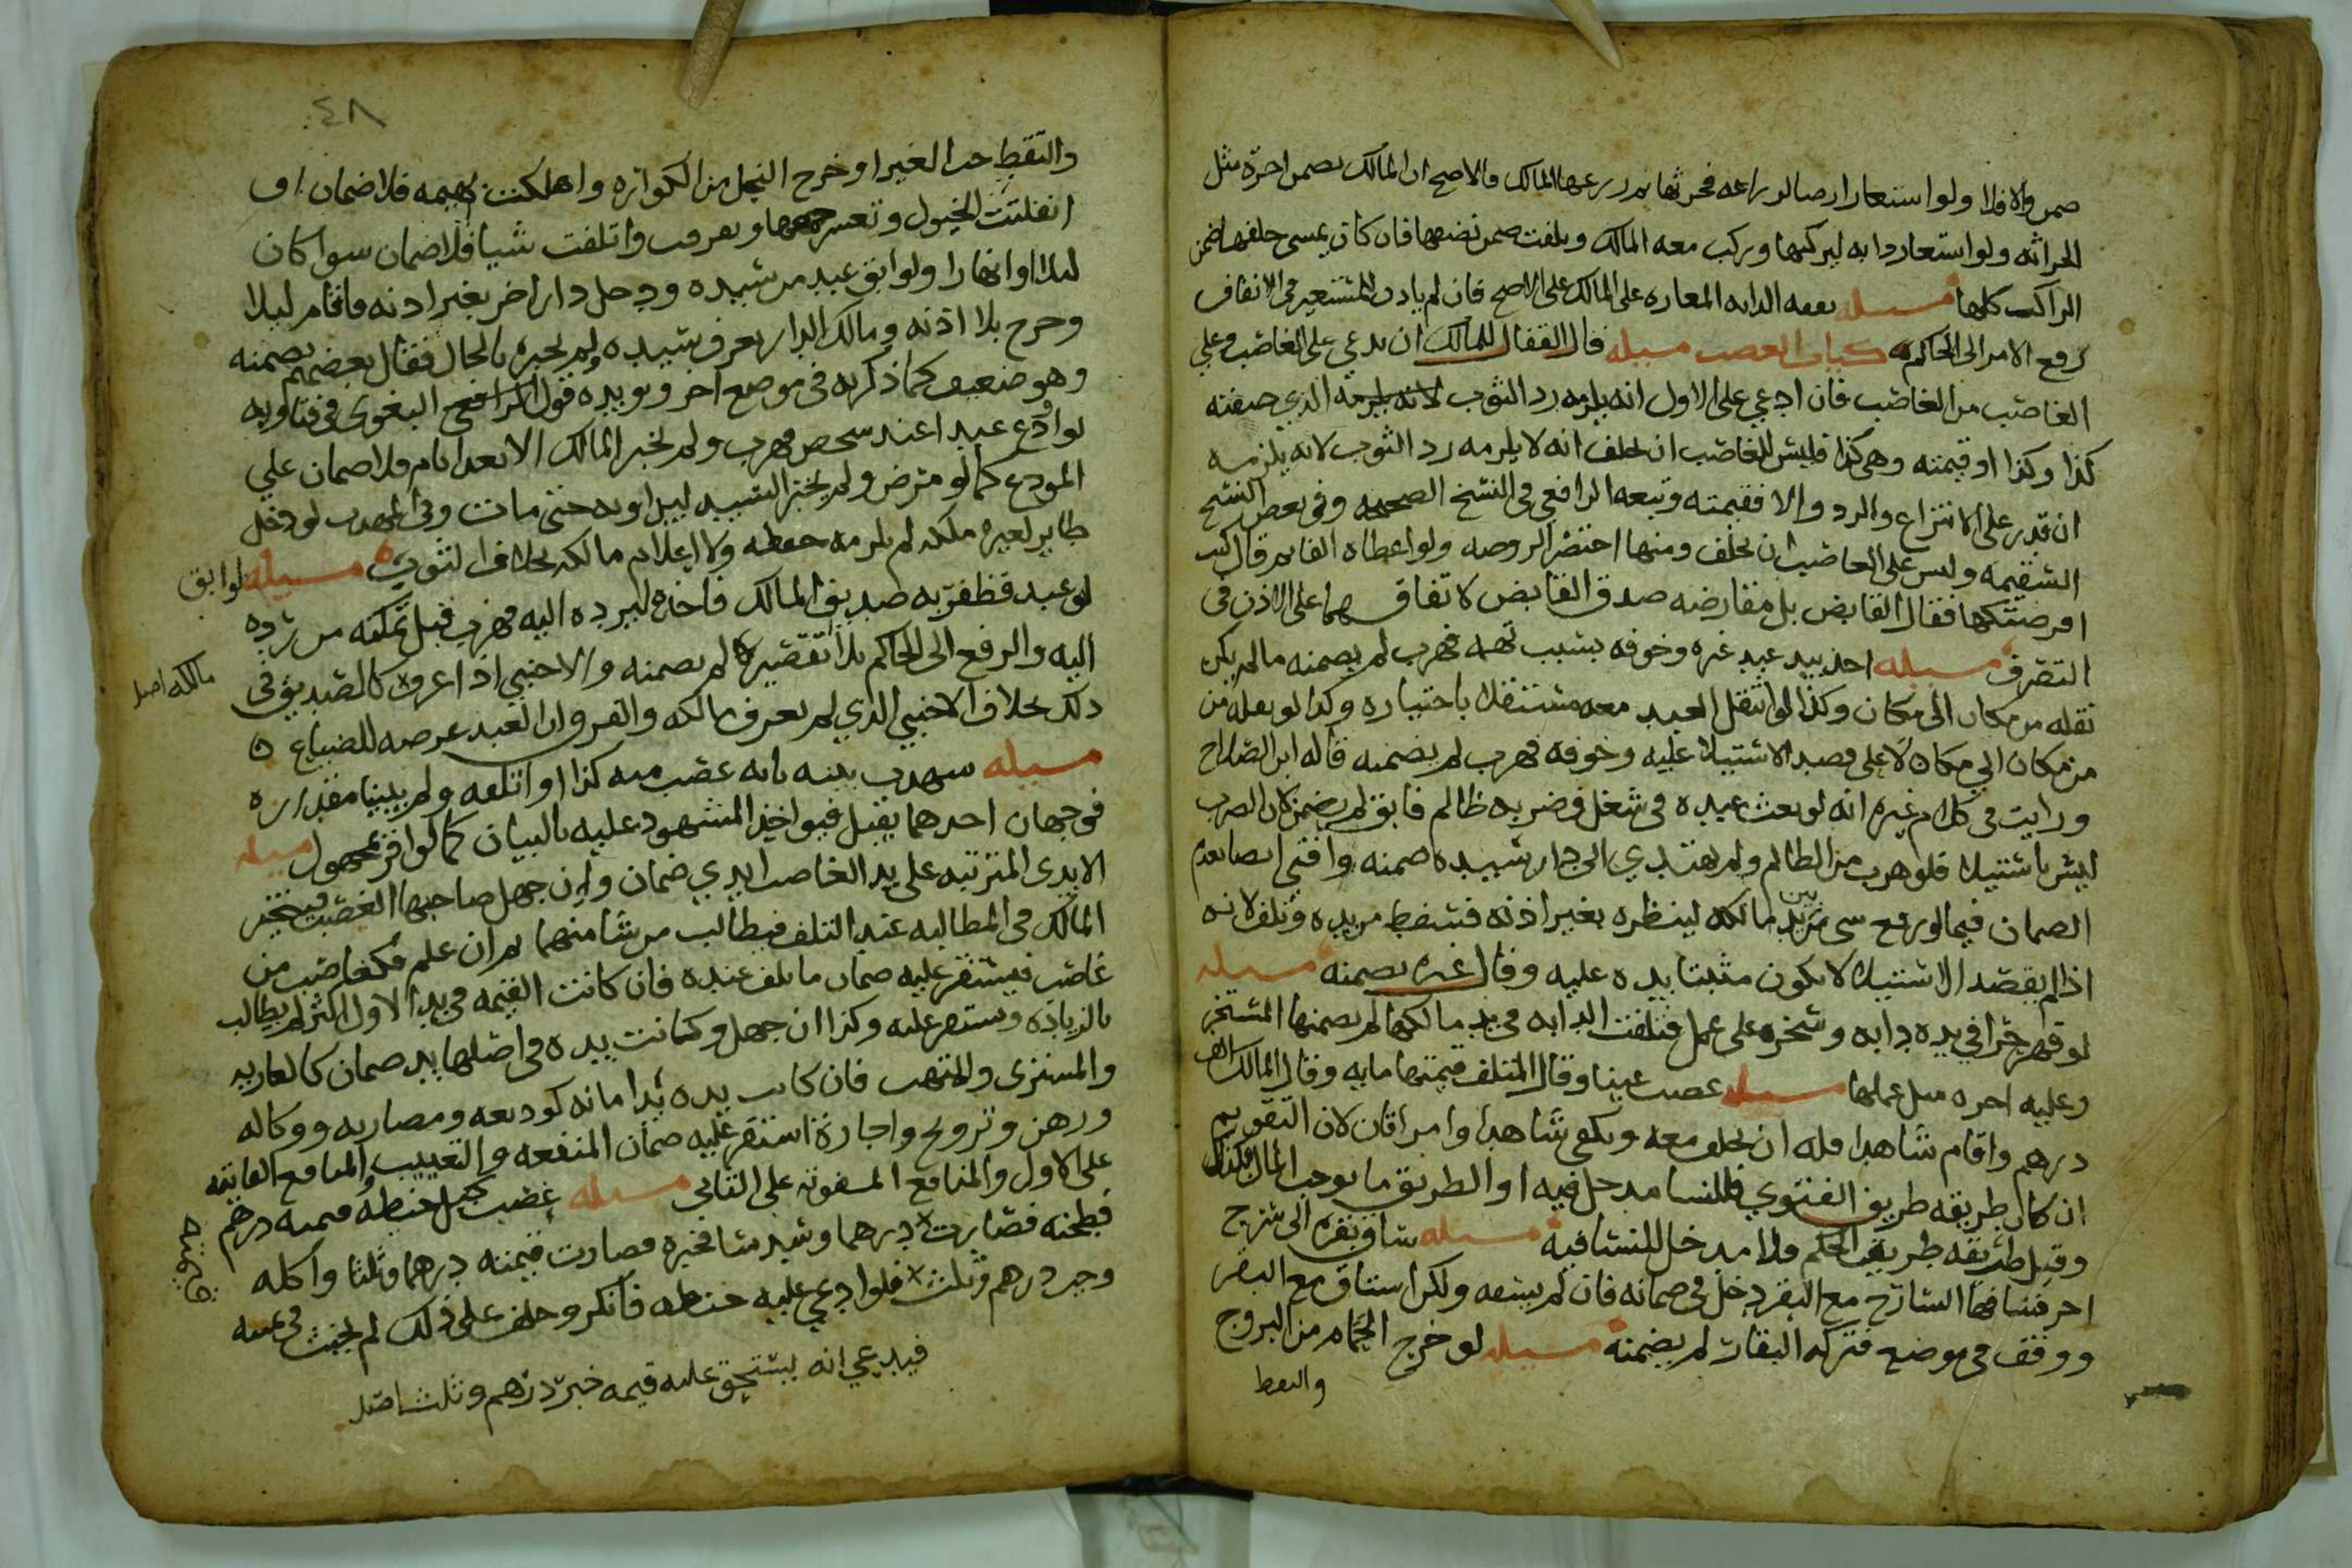 ضمن والا فلا ولو استعار ارضا لزراعه فحرثها ثم رجع المالك فالاصح ان المالك يضمن اجرة مثل
الحراثه ولو استعار دابه ليركبها ويركب معه المالك وتلفت ضمن نصفها فان كان يمسى خلفها ضمن
الراكب كلها مسيله نفقه الدابه المعاره على المالك على الاصح فان لم ياذن للمستعير فى الانفاق
رفع الامر الى الحاكم كتاب الغصب مسيله قال القفال للمالك ان يدعي على الغاصب وعلي
الغاصب من الغاصب فان ادعي على الاول انه يلزمه رد الثوب الذي صفته
كذا وكذا او قيمته وهى كذا فليس للغاصب ان يحلف انه لا يلزمه رد الثوب لانه يلزمه
ان قدر على الانتزاع والرد والا فقيمته وتبعه الرافعي فى النسخ الصحيحه وفى بعض النسخ
السقيمه وليس على الغاصب ان يحلف ومنها اختصر الروضه ولو اعطاه الفا ثم قال كنت
اقرضتكها فقال القابض بل مقارضه صدق القابض لاتفاقهما على الاذن فى
التصرف مسيله اخذ بيد عبد غيره وخوفه بسبب تهمه فهرب لم يضمنه ما لم يكن
نقله من مكان الى مكان وكذا لو انتقل العبد معه مستقلا باختياره وكذا لو نقله من
من مكان الي مكان لا على قصد الاستيلا عليه وخوفه فهرب لم يضمنه قاله ابن الصلاح
ورايت فى كلام غيره انه لو بعث عبده فى شغل فضربه ظالم فابق لم يضمن لان الضرب
ليس باستيلا فلو هرب من الظالم ولم يهتدي الى دار سيده ضمنه وافتي ايضا بعدم
الضمان فيما لو رفع شى من بين يد مالكه لينظره بغير اذنه فسقط من يده وتلف لانه
اذا لم يقصد الاستيلا لا يكون مثبتا يده عليه وقال غيره يضمنه مسيله
لو قهر حرا في يده دابه وسخره على عمل فتلفت الدابه فى يد مالكها لم يضمنها المسخر
وعليه اجره مثل عملها مسيله غصب عينا وقال المتلف قيمتها مايه وقال المالك الف
درهم واقام شاهدا فله ان يحلف معه ويكفى شاهدا وامراتان لان التقويم
ان كان طريقه طريق الفتوي فللنسا مدخل فيه او الطريق ما يوجب المال فكذلك
وقيل طريقه طريق الحكم فلا مدخل للنسا فيه مسيله ساق بقره الى سرح
اخر فساقها السارح مع البقر دخل فى ضمانه فان لم يسقه ولكن استاق مع البقر
ووقف فى موضع فتركه البقار لم يضمنه مسيله لو خرج الحمام من البروج
والتقط
٤٨
والتقط حب الغير او خرج النحل من الكواره واهلكت بهيمه فلا ضمان او
انفلتت الخيول وتعسر جمعها وتفرقت واتلفت شيا فلا ضمان سوا كان
ليلا او نهارا ولو ابق عبد من سيده ودخل دار اخر بغير اذنه واقام ليلا
وخرج بلا اذنه ومالك الدار يعرف سيده ولم يخبره بالحال فقال بعضهم يضمنه
وهو ضعيف كما ذكر به فى موضع اخر ويويده قول البغوى فى فتاويه
لو اودع عبدا عند شخص فهرب ولم يخبر المالك الا بعد ايام فلا ضمان علي
المودع كما لو مرض ولم يخبر السيد ليداويه حتى مات وفى المهذب لو دخل
طاير لغيره ملكه لم يلزمه حفظه ولا اعلام مالكه بخلاف الثوب مسيله لو ابق
لو عبد فظفر به صديق المالك فاخذه ليرده اليه فهرب قبل تمكنه من رده
اليه والرفع الى الحاكم بلا تقصيره لم يضمنه والاجنبي اذا عرف كالصديق فى
مالكه اصل
ذلك بخلاف الاجنبي الذي لم يعرف مالكه والفرق ان العبد عرضه للضياع
مسيله شهدت بينه بانه غصب منه كذا او اتلفه ولم يبينا مقداره
فوجهان احدهما يقبل فيواخذ المشهود عليه بالبيان كما لو اقر بمجهول مسيله
الايدى المترتبه على يد الغاصب ايدي ضمان وان جهل صاحبها الغصب فيتخير
المالك فى المطالبه عند التلف فيطالب من شا منهما ثم ان علم فكغاصب من
غاصب فيستقر عليه ضمان ما تلف عنده فان كانت القيمه فى يد الاول اكثر لم يطالب
بالزياده وتستقر عليه وكذا ان جهل وكانت يده فى اصلها يد ضمان كالعاريه
والمشترى والمتهب فان كانت يده يد امانه كوديعه ومضاربه ووكاله
ورهن وتزويج واجارة استقر عليه ضمان المنفعه والتعييب والمنافع الفايته
على الاول والمنافع المفوته على الثاني مسيله غصب كيل حنطه قيمته درهم
فطحنه فصارت درهما وسدسا فخبزه فصارت قيمته درهما وثلثا واكله
وجب درهم وثلث فلو ادعي عليه حنطه فانكر وحلف على ذلك لم يحنث فى يمينه
فيدعي انه يستحق عليه قيمه خبز درهم وثلث اصل